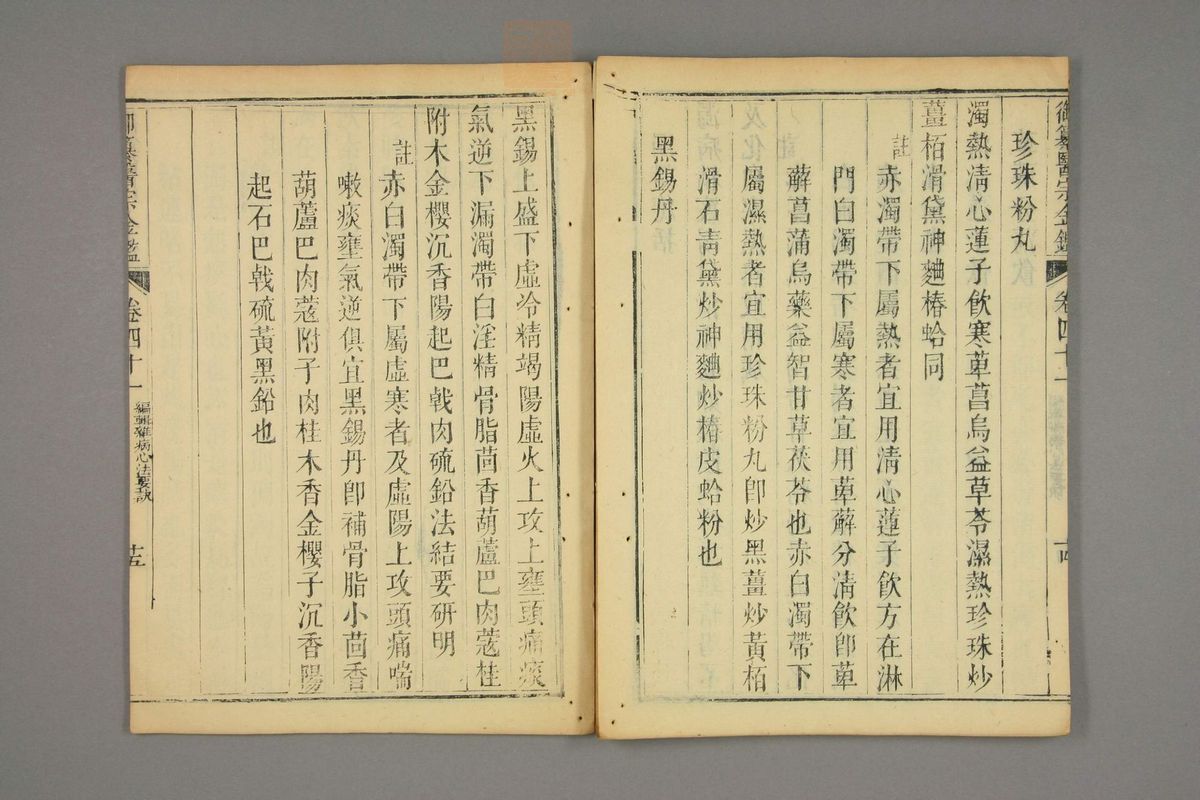 御纂醫宗金鑑 卷四十一 十四
珍珠粉丸
濁熱清心蓮子飲寒萆菖烏益草苓濕熱珍珠炒
薑栢滑黛神麯椿蛤同
註
赤濁帶下屬熱者宜用清心蓮子飲方在淋
門白濁帶下屬寒者宜用萆薢分清飲卽萆
薢菖蒲烏藥益智甘草茯苓也赤白濁帶下
屬濕熱者宜用珍珠粉丸卽炒黑薑炒黃栢
滑石青黛炒神麯炒椿皮蛤粉也
黑錫丹
黑錫上盛下虛冷精竭陽虛火上攻上壅頭痛痰
氣逆下漏濁帶白淫精骨脂茴香葫蘆巴肉蔻桂
附木金櫻沉香陽起巴戟肉硫鉛法結要研明
註
赤白濁帶下屬虛寒者及虛陽上攻頭痛喘
嗽痰壅氣逆俱宜黑錫丹卽補骨脂小茴香
葫蘆巴肉蔻附子肉桂木香金櫻子沉香陽
起石巴戟硫黃黑鉛也
御纂醫宗金鑑 卷四十一 編輯雜病心法要訣 十五